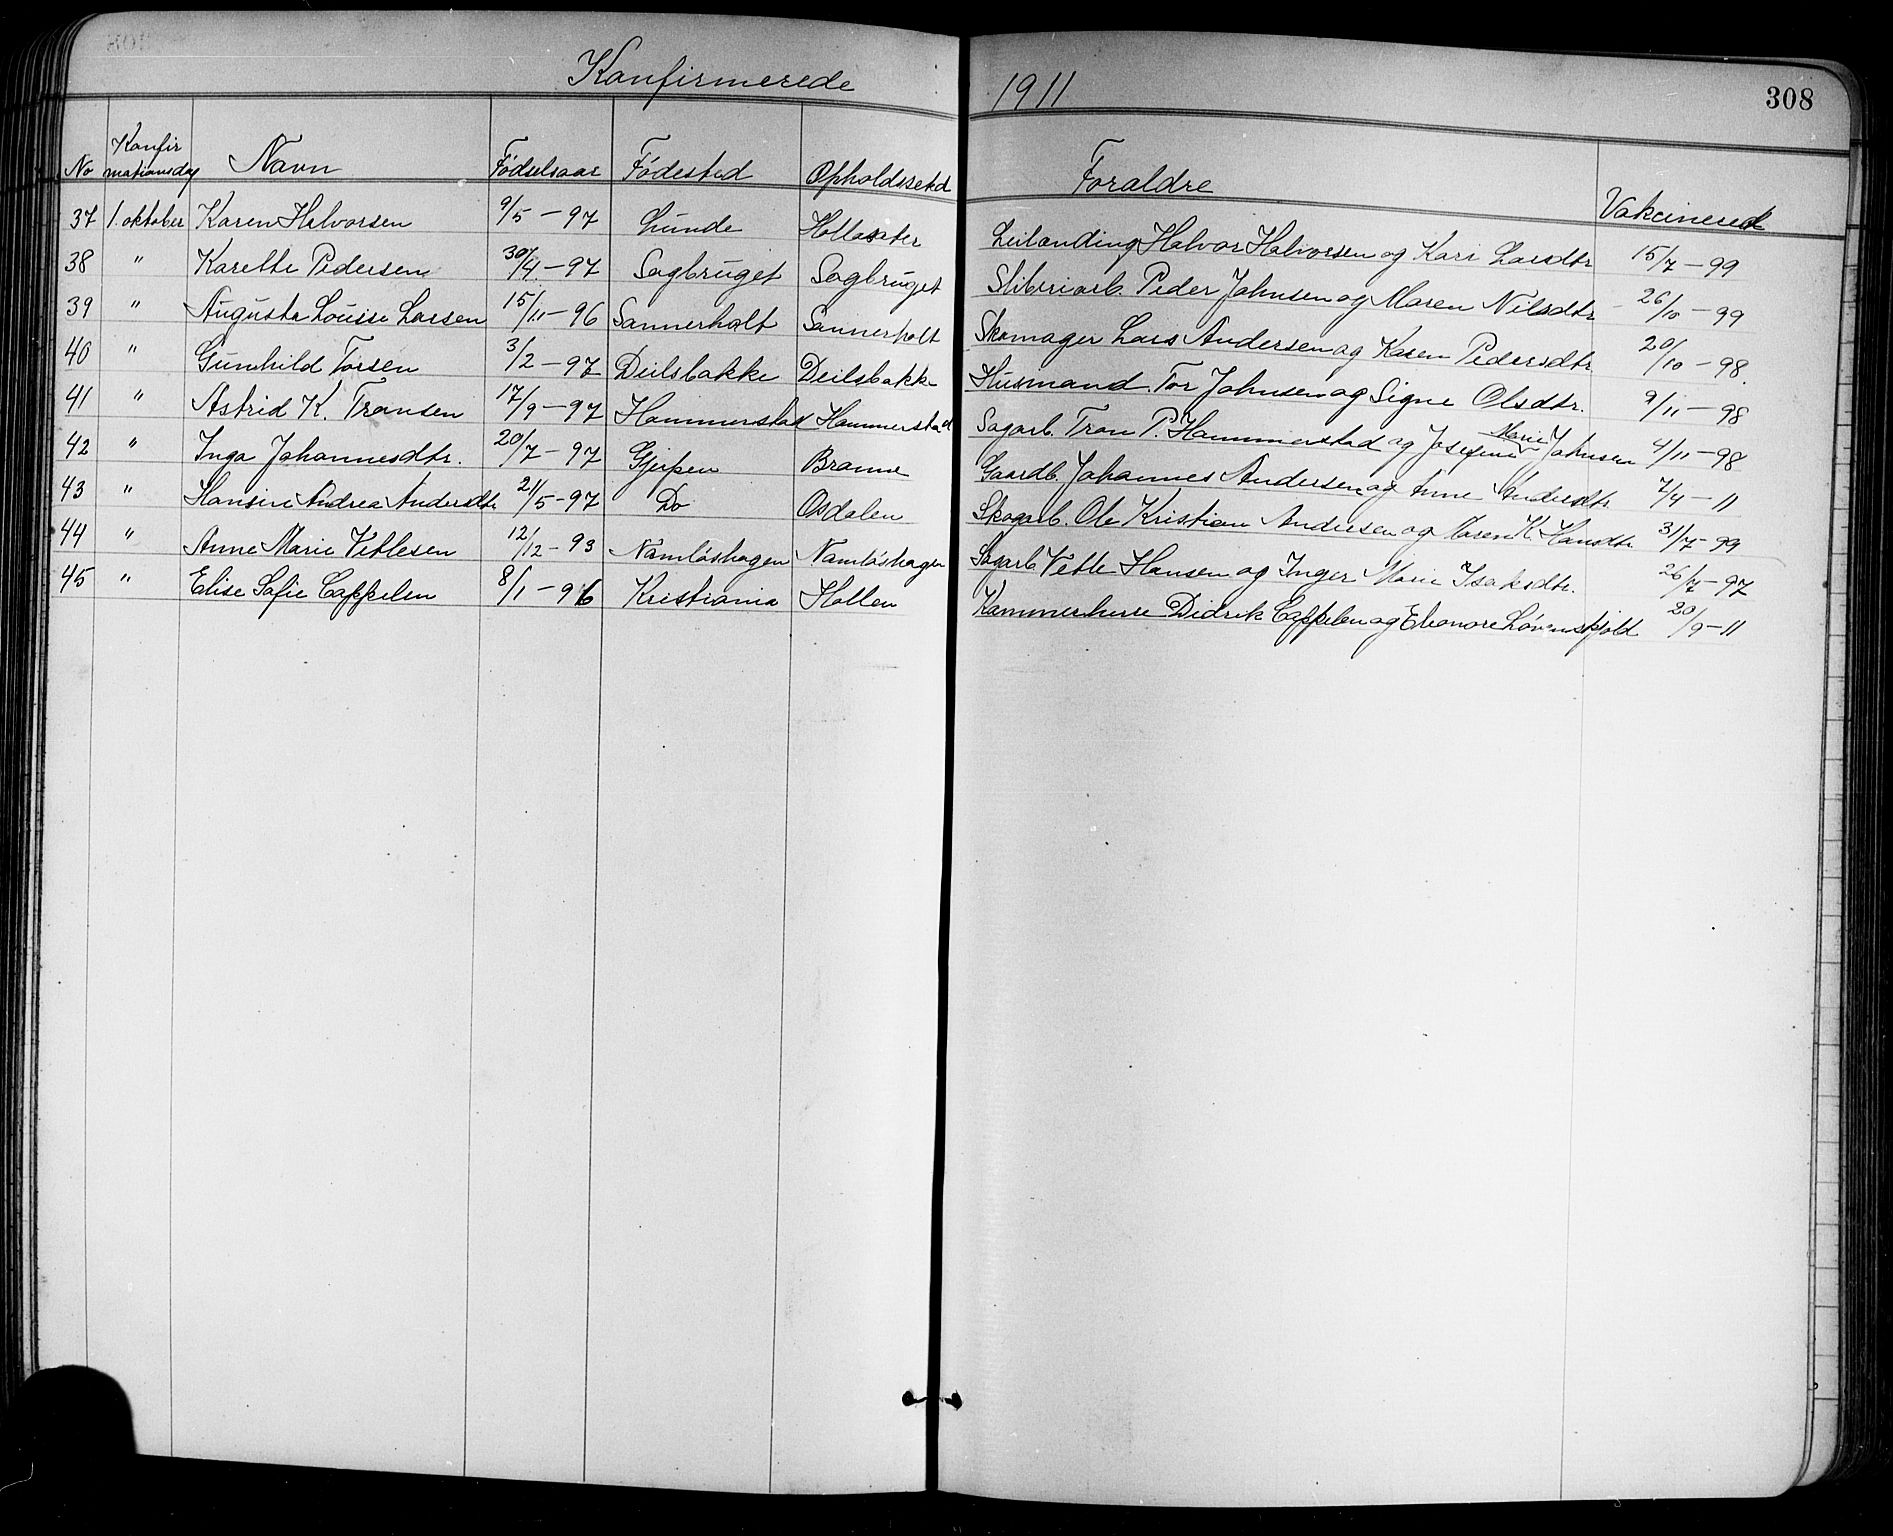 Konfirmerede 1911 308
No Konfirmationsdag Navn Fødselsaar Fødested Opholdssetd Foraldre Vakcinered
37 1. oktober Karen Halvorsen 9/5 - 97 Lunde Hollasæter Leilanding Halvor Halvorsen og Kari Larsdtr 15/7 - 99
38 " Karette Pedersen 30/4 - 97 Sagbruget Sagbruget Sliberiarb. Peder Johnsen og Maren Nilsdtr 26/10 - 99
39 " Augusta Louise Larsen 15/11 - 96 Sannerholt Sannerholt Skomager Lars Andersen og Karen Pedersdtr 20/10 - 98.
40 " Gunhild Torsen 3/2 - 97 Deilsbakke Deilsbakke Husmand Tor Johnsen og Signe Olsdtr. 9/11 - 98
41 " Astrid K. Transen 17/9 - 97 Hammerstad Hammerstad Sagarb. Tron P. Hammerstad og Josefine Marie Johnsen 4/11 - 98
42 " Inga Johannesdtr. 20/7 - 97 Gjerpen Branne Gaardb. Johannes Andersen og Anne Andersdtr 7/4 - 11
43 " Hansine Andrea Andersdtr 21/5 - 97 Do Osdalen Skogarb. Ole Kristian Andersen og Maren K. Hansdtr 31/7 - 99
44 " Anne Marie Vetlesen 12/12 - 93 Namløshagen Namløshagen Sagarb Vetle Hansen og Inger Marie Isaksdtr. 26/7 - 97
45 " Elise Sofie Cappelen 8/1 - 96 Kristiania Hollen Kammerherre Didrik Cappelen og Eleonore Løvenskjold 20/9 - 11